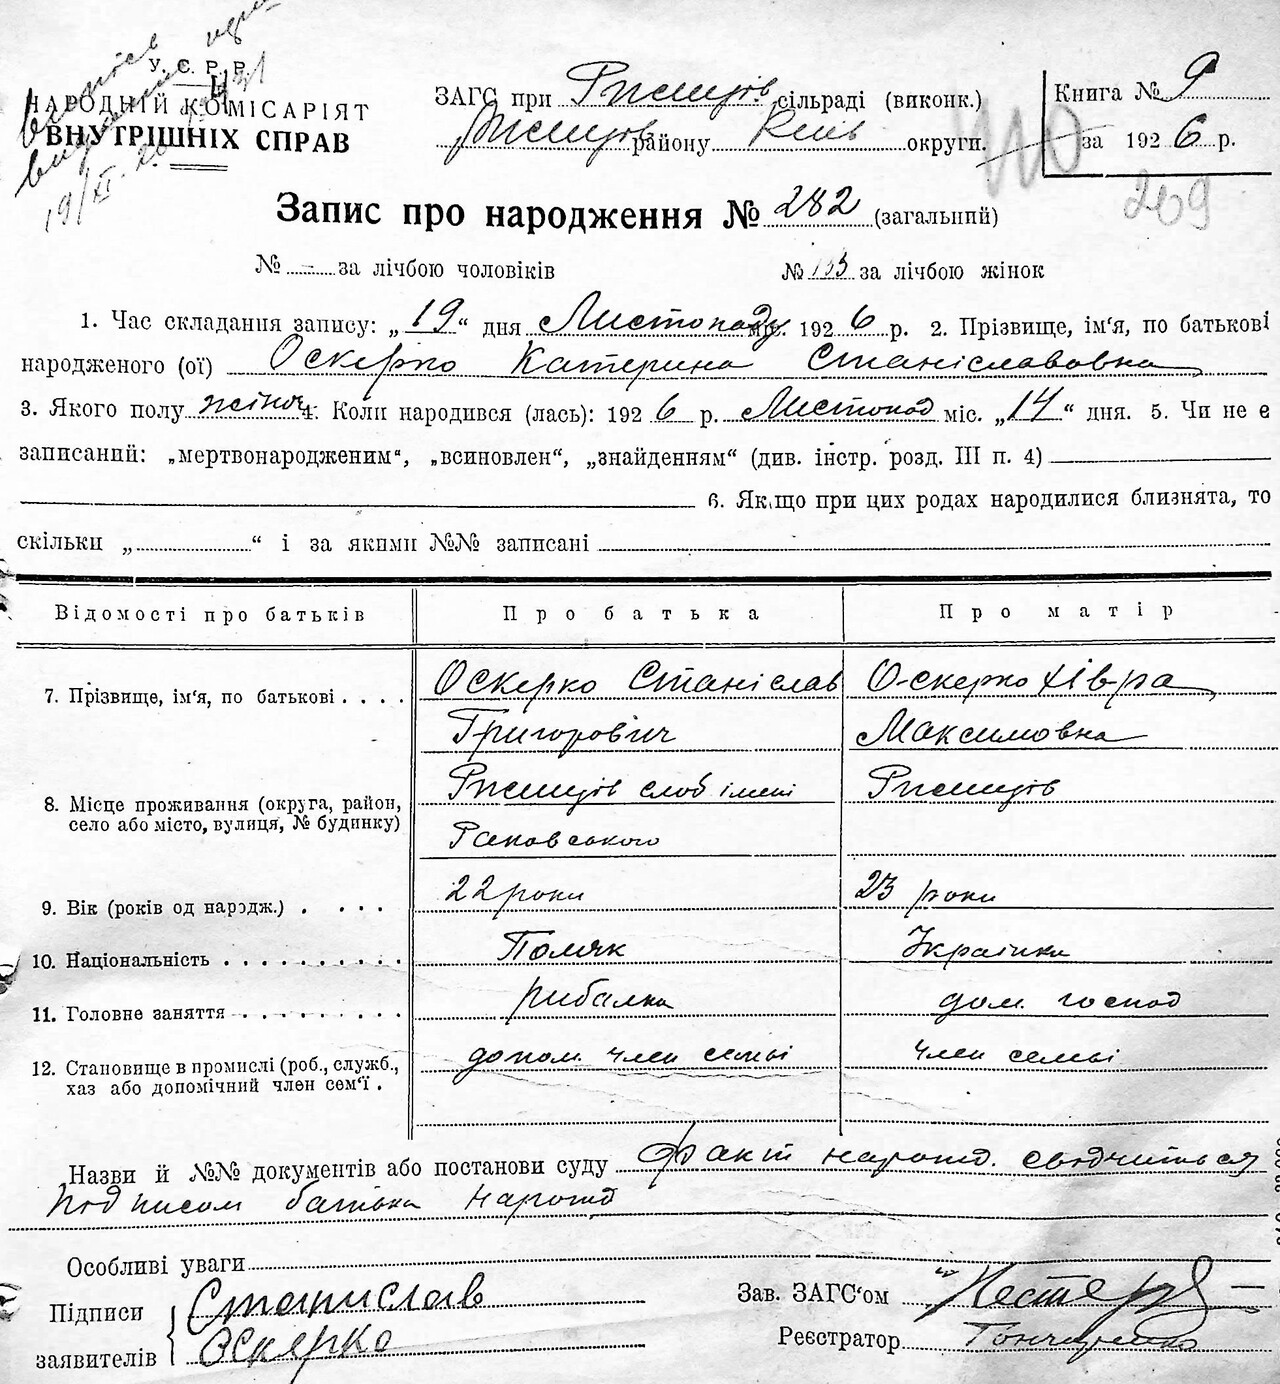 У. С. Р. Р.
НАРОДНІЙ КОМІСАРІЯТ
ВНУТРІШНІХ СПРАВ
ЗАГС при Ржищів сільраді (виконк.)
Ржищів району Київ округи.
Книга № 9
за 1926 р.
209
Запис про народження № 282 (загальний)
№ - за лічбою чоловіків № 133 за лічбою жінок
1. Час складання запису: „19“ дня Листопаду міс. 1926 р. 2. Прізвище, ім'я, по батькові
народженого (ої) Оскерко Катерина Станіславовна
3. Якого полу жіноч 4. Коли народився (лась): 1926 р. Листопад міс. „14“ дня. 5. Чи не є
записаний: „мертвонародженим“, „всиновлен“, „знайденням“ (див. інстр. розд. III п. 4)
6. Якщо при цих родах народилися близнята, то
скільки „ “ і за якими №№ записані
Відомості про батьків Про батька Про матір
7. Прізвище, ім'я, по батькові . . . . Оскерко Станіслав Оскерко Хівра
Григорович Максимовна
8. Місце проживання (округа, район, село або місто, вулиця, № будинку) Ржищів слоб імені Ржищів
Раковського
9. Вік (років од народж.) . . . . 22 роки 23 роки
10. Національність . . . . . . . . . . Поляк Українка
11. Головне заняття . . . . . . . . . рибалка дом. господ
12. Становище в промислі (роб., служб., хаз або допомічний член сем'ї . допом. член семьі член семьі
Назви й №№ документів або постанови суду Факт нарожд. сводчиться
подписом батька нарожд
Особливі уваги
Підписи заявителів Станислав
Оскерко
Зав. ЗАГС'ом
Реєстратор Гончаренко